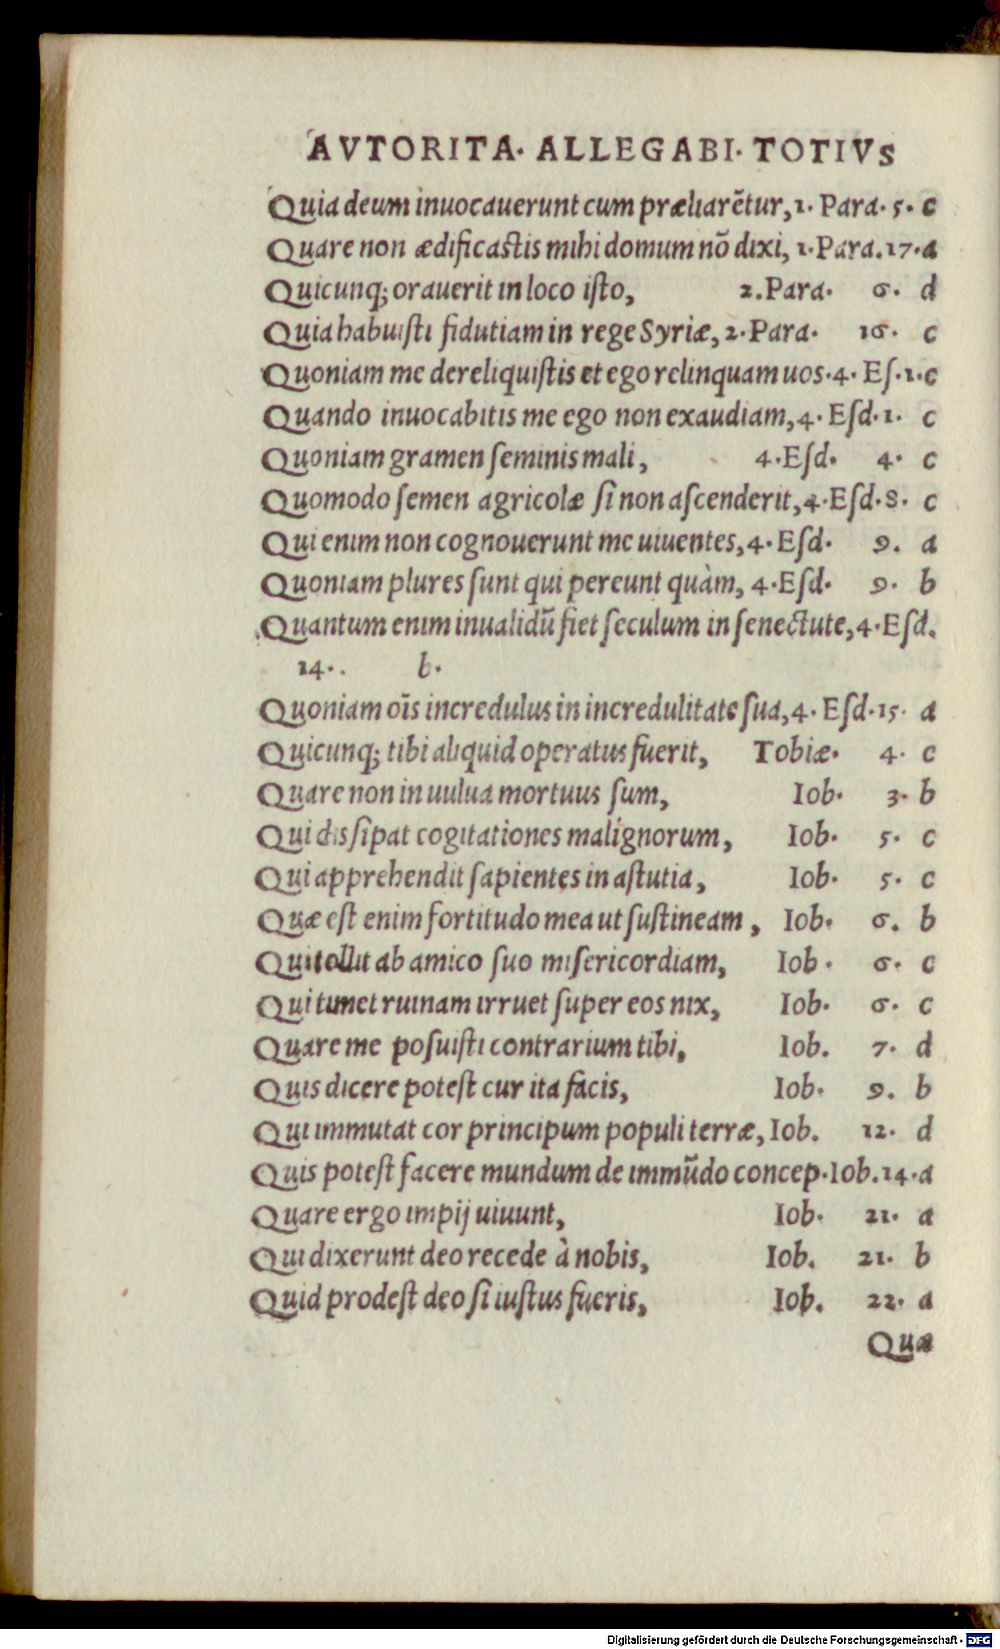 AVTORITA· ALLEGABI· TOTIVS
Quia deum inuocauerunt cum præliarẽtur, 1· Para· 5· c
Quare non ædificastis mihi domum nõ dixi, 1·Para.17·a
Quicunq; orauerit in loco iſto, 2.Para· 6. d
Quia habuiſti fidutiam in rege Syriæ, 2·Para· 16· c
Quoniam me dereliquiſtis et ego relinquam uos·4· Eſ·1·c
Quando inuocabitis me ego non exaudiam, 4· Eſd·1· c
Quoniam gramen ſeminis mali, 4·Eſd· 4· c
Quomodo ſemen agricolæ ſi non aſcenderit, 4·Eſd·8· c
Qui enim non cognouerunt me uiuentes, 4· Eſd· 9. a
Quoniam plures ſunt qui pereunt quàm, 4·Eſd· 9· b
Quantum enim inualidũ fiet ſeculum in ſenectute, 4·Eſd.
14·. b·
Quoniam oĩs incredulus in incredulitate ſua, 4· Eſd·15· a
Quicunq; tibi aliquid operatus fuerit, Tobiæ· 4· c
Quare non in uulua mortuus ſum, Iob· 3· b
Qui disſipat cogitationes malignorum, Iob· 5· c
Qui apprehendit ſapientes in aſtutia, Iob· 5· c
Quæ eſt enim fortitudo mea ut ſuſtineam, Iob· 6. b
Qui tollit ab amico ſuo miſericordiam, Iob· 6· c
Qui timet ruinam irruet ſuper eos nix, Iob· 6· c
Quare me poſuiſti contrarium tibi, Iob. 7· d
Quis dicere poteſt cur ita facis, Iob· 9. b
Qui immutat cor principum populi terræ, Iob. 12· d
Quis poteſt facere mundum de immũdo concep·Iob.14·a
Quare ergo impij uiuunt, Iob· 21· a
Qui dixerunt deo recede à nobis, Iob. 21· b
Quid prodeſt deo ſi iuſtus fueris, Iob. 22· a
Quæ
Digitalisierung gefördert durch die Deutsche Forschungsgemeinschaft - DFG